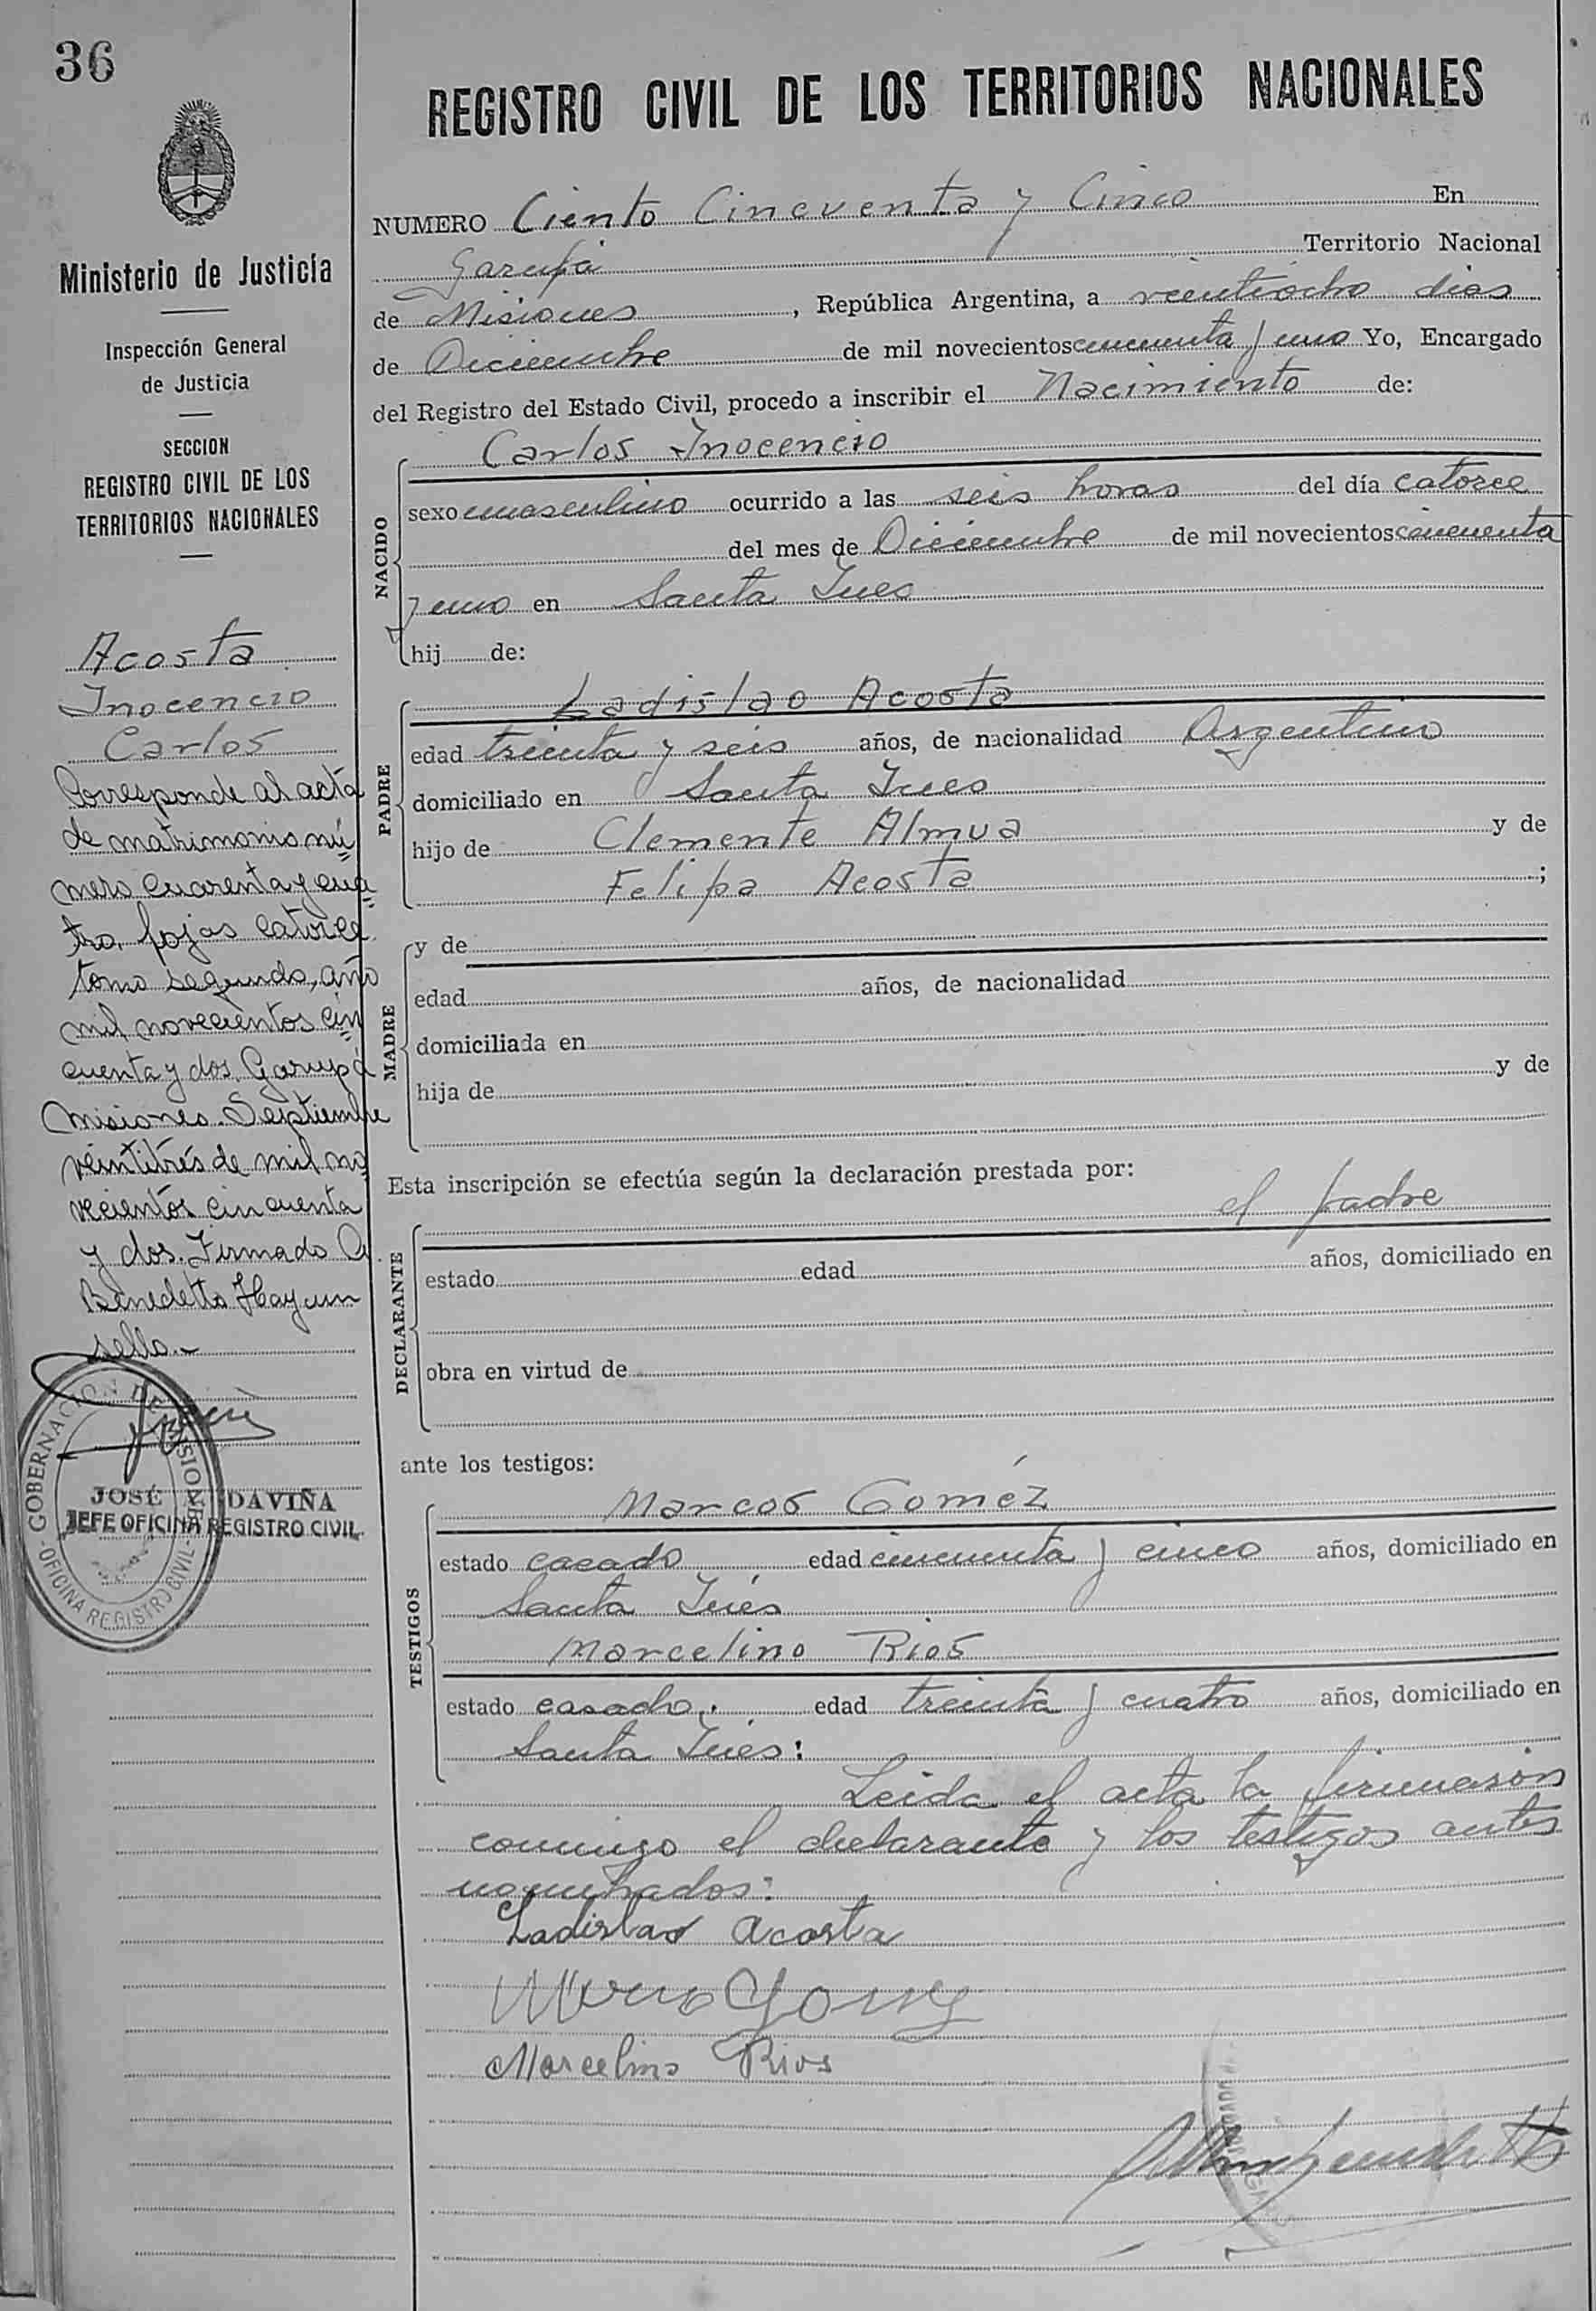 36
Ministerio de Justicia
Inspección General
de Justicia
SECCION
REGISTRO CIVIL DE LOS
TERRITORIOS NACIONALES
Acosta
Inocencio
Carlos
Corresponde al acta
de matrimonio nú=
mero cuarenta y cua=
tro, fojas catorce
tomo segundo, año
mil novecientos cin=
cuenta y dos. Garupá
Misiones. Septiembre
veintitrés de mil no=
vecientos cincuenta
y dos. Firmado
Benedetto Hay un
sello.-
GOBERNACION DE MISIONES
OFICINA REGISTRO CIVIL
JOSÉ DAVIÑA
JEFE OFICINA REGISTRO CIVIL
REGISTRO CIVIL DE LOS TERRITORIOS NACIONALES
NUMERO Ciento Cincuenta y Cinco En
Garupá Territorio Nacional
de Misiones, República Argentina, a veintiocho dias
de Diciembre de mil novecientos cincuenta y uno Yo, Encargado
del Registro del Estado Civil, procedo a inscribir el Nacimiento de:
NACIDO
Carlos Inocencio
sexo masculino ocurrido a las seis horas del día catorce
del mes de Diciembre de mil novecientos cincuenta
y uno en Santa Ines
hij de:
PADRE
Ladislao Acosta
edad treinta y seis años, de nacionalidad Argentino
domiciliado en Santa Ines
hijo de Clemente Almua y de
Felipa Acosta ;
MADRE
y de
edad años, de nacionalidad
domiciliada en
hija de y de
Esta inscripción se efectúa según la declaración prestada por:
DECLARANTE
el padre
estado edad años, domiciliado en
obra en virtud de
ante los testigos:
TESTIGOS
Marcos Goméz
estado casado edad cincuenta y cinco años, domiciliado en
Santa Inés
Marcelino Rios
estado casado. edad treinta y cuatro años, domiciliado en
Santa Inés:
Leida el acta la firmason
conmigo el declarante y los testigos antes
nombrados:
Ladislao Acosta
Marcelino Rios